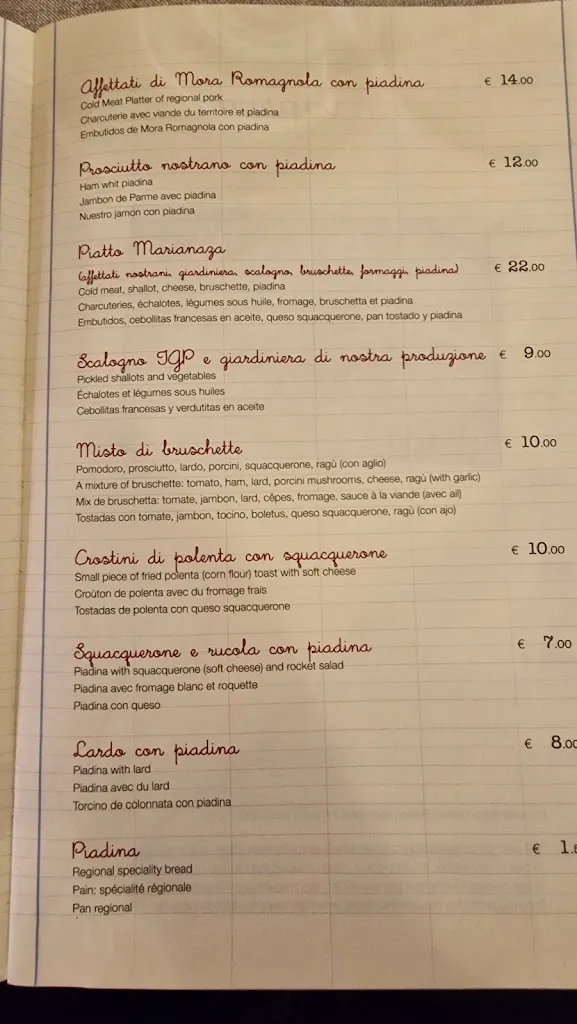 Affettati di Mora Romagnola con piadina € 14.00
Cold Meat Platter of regional pork
Charcuterie avec viande du territoire et piadina
Embutidos de Mora Romagnola con piadina
Prosciutto nostrano con piadina € 12.00
Ham whit piadina
Jambon de Parme avec piadina
Nuestro jamon con piadina
Piatto Marianaza
(affettati nostrani, giardiniera, scalogno, bruschette, formaggi, piadina) € 22.00
Cold meat, shallot, cheese, bruschette, piadina
Charcuteries, échalotes, légumes sous huile, fromage, bruschetta et piadina
Embutidos, cebollitas francesas en aceite, queso squacquerone, pan tostado y piadina
Scalogno IGP e giardiniera di nostra produzione € 9.00
Pickled shallots and vegetables
Échalotes et légumes sous huiles
Cebollitas francesas y verdutitas en aceite
Misto di bruschette € 10.00
Pomodoro, prosciutto, lardo, porcini, squacquerone, ragù (con aglio)
A mixture of bruschette: tomato, ham, lard, porcini mushrooms, cheese, ragù (with garlic)
Mix de bruschetta: tomate, jambon, lard, cêpes, fromage, sauce à la viande (avec ail)
Tostadas con tomate, jambon, tocino, boletus, queso squacquerone, ragù (con ajo)
Crostini di polenta con squacquerone € 10.00
Small piece of fried polenta (corn flour) toast with soft cheese
Croûton de polenta avec du fromage frais
Tostadas de polenta con queso squacquerone
Squacquerone e rucola con piadina € 7.00
Piadina with squacquerone (soft cheese) and rocket salad
Piadina avec fromage blanc et roquette
Piadina con queso
Lardo con piadina € 8.00
Piadina with lard
Piadina avec du lard
Torcino de colonnata con piadina
Piadina € 1.
Regional speciality bread
Pain: spécialité régionale
Pan regional